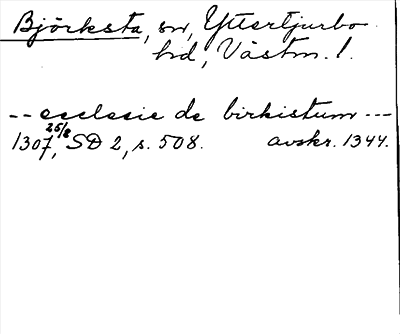 Björksta, sn, Yttertjurbo
hd, Västm. l.
-- ecclesie de birkistum ---
1307 25/8, SD 2, s. 508. avskr. 1344.